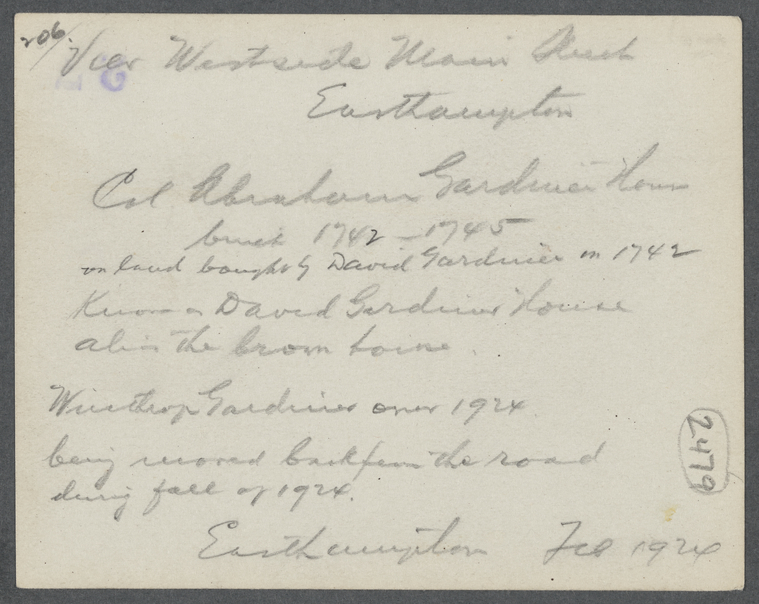 206.
View Westside Main Street
Easthampton
Col Abraham Gardiner House
built 1742-1745
on land bought by David Gardiner in 1742
Known as David Gardiner House
alias the brown house.
Winthrop Gardiner owner 1924.
being moved back from the road
during fall of 1924.
Easthampton Feb 1924
2479